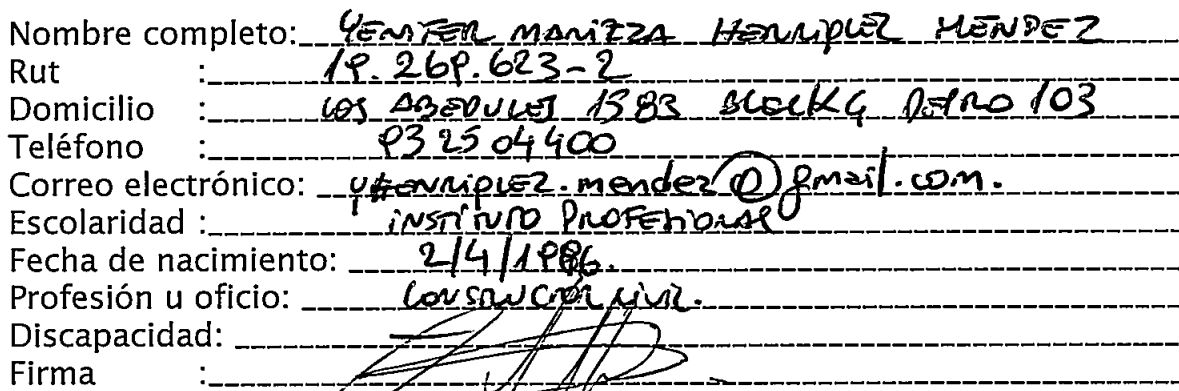 Nombre completo: YENIFER MARITZA HENRIQUEZ MENDEZ
Rut : 19.269.623-2
Domicilio : LOS ABEDULES 1383 BLOCK G DEPTO 103
Teléfono : 932504400
Correo electrónico: yHENRIQUEZ.mendez@gmail.com.
Escolaridad : INSTITUTO PROFESIONAL
Fecha de nacimiento: 2/4/1996.
Profesión u oficio: CONSTRUCCIÓN CIVIL.
Discapacidad: —
Firma :